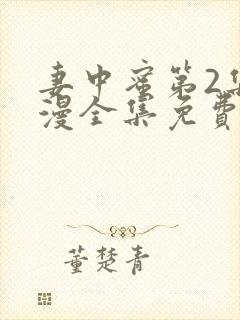 妻中蜜第2集
漫全集免费
董楚青